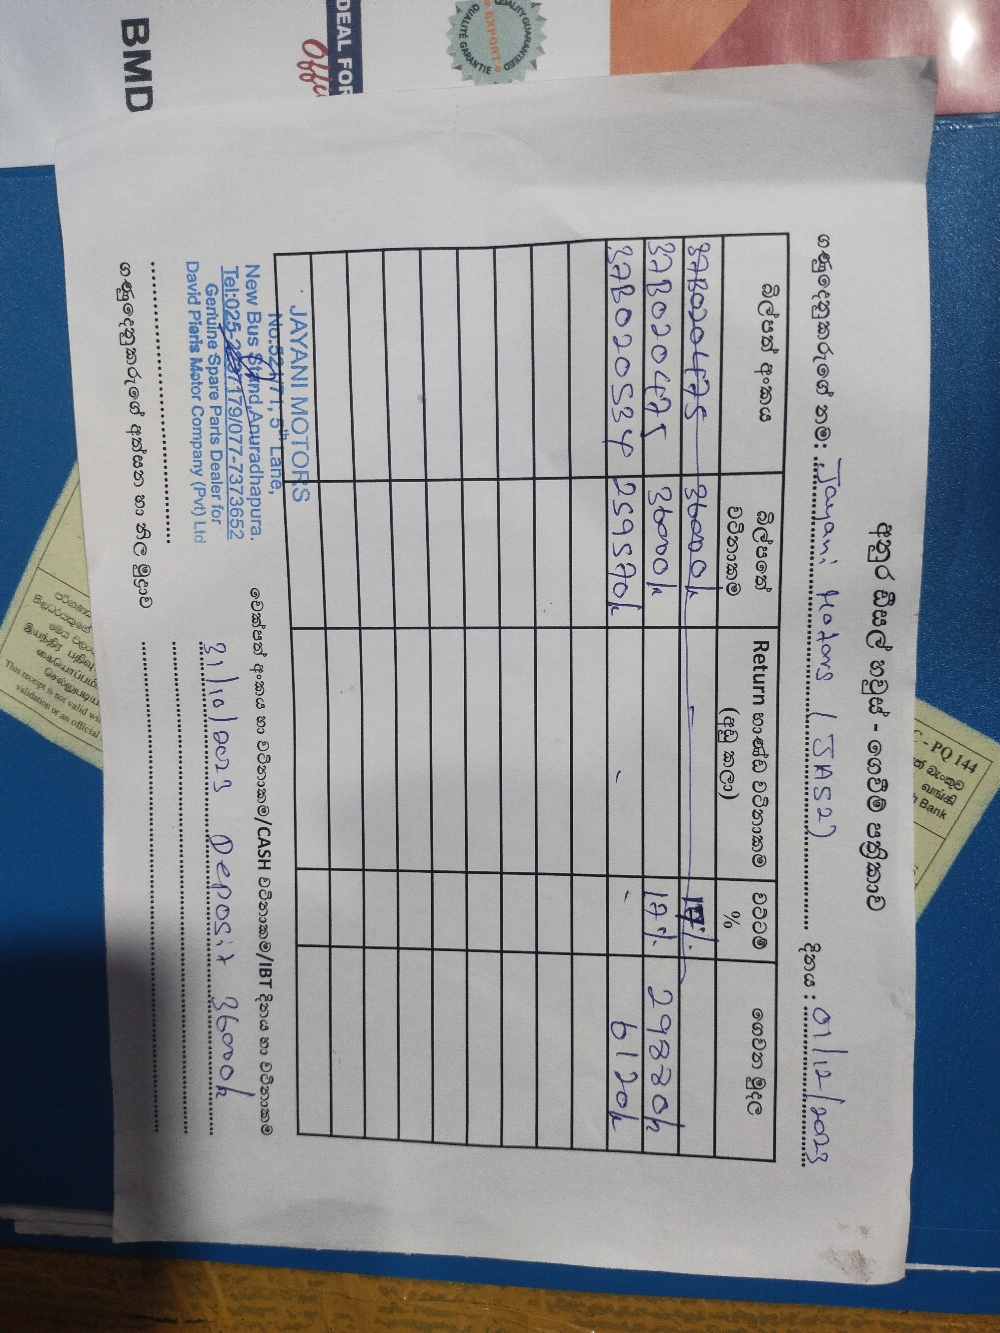 අනුර ඩීසල් හවුස් - ගෙවීම් පත්‍රිකාව
ගණුදෙනුකරුගේ නම: Jayani Motors (JAS27) දිනය : 01/12/2023
බිල්පත් අංකය බිල්පතේ වටිනාකම Return භාණ්ඩ වටිනාකම (අඩු කලා) වට්ටම් % ගෙවන මුදල
37B020475 36000/= - 17%
37B020475 36000/= 17% 29880/=
37B020534 259570/= - - 6120/=
JAYANI MOTORS
No.521/71, 5th Lane,
New Bus Stand, Anuradhapura.
Tel:025-2237179/077-7373652
Genuine Spare Parts Dealer for
David Pieris Motor Company (Pvt) Ltd
චෙක්පත් අංකය හා වටිනාකම/CASH වටිනාකම/IBT දිනය හා වටිනාකම
31/10/2023 Deposit 36000/=
ගණුදෙනුකරුගේ අත්සන හා නිල මුද්‍රාව
BMD
DEAL FOR
QUALITY GUARANTEED
EXPORT
QUALITÉ GARANTIE
C - PQ 144
வங்கி
h Bank
This receipt is not valid
validation or an official